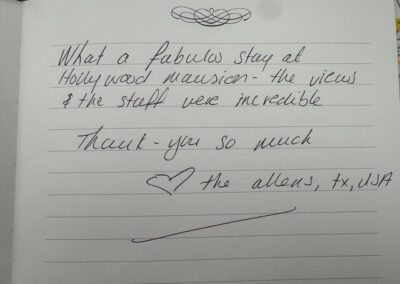 What a fabulos stay at
Hollywood mansion - the views
& the staff were incredible
Thank - you so much
♡ the allens, tx, USA